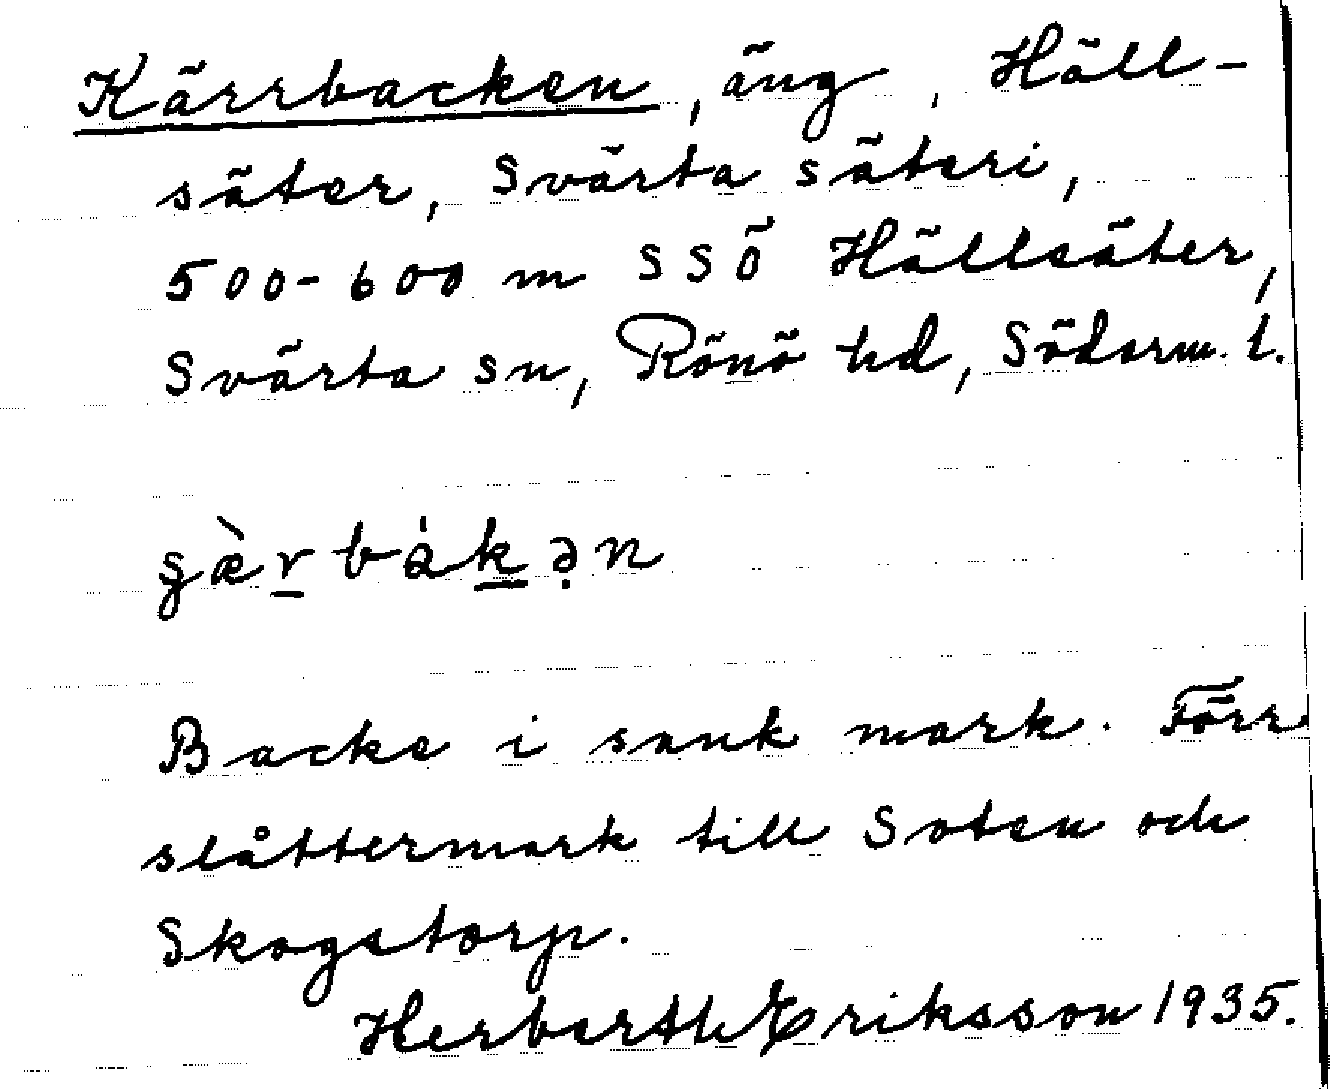 Kärrbacken, äng, Häll-
säter, Svärta säteri,
500-600 m SSÖ Hällsäter,
Svärta sn, Rönö hd, Söderm. l.
gæ̀r̲bȧk̲ə̣n
Backe i sank mark. Förr
slåttermark till Soten och
Skogstorp.
Herberth Eriksson 1935.